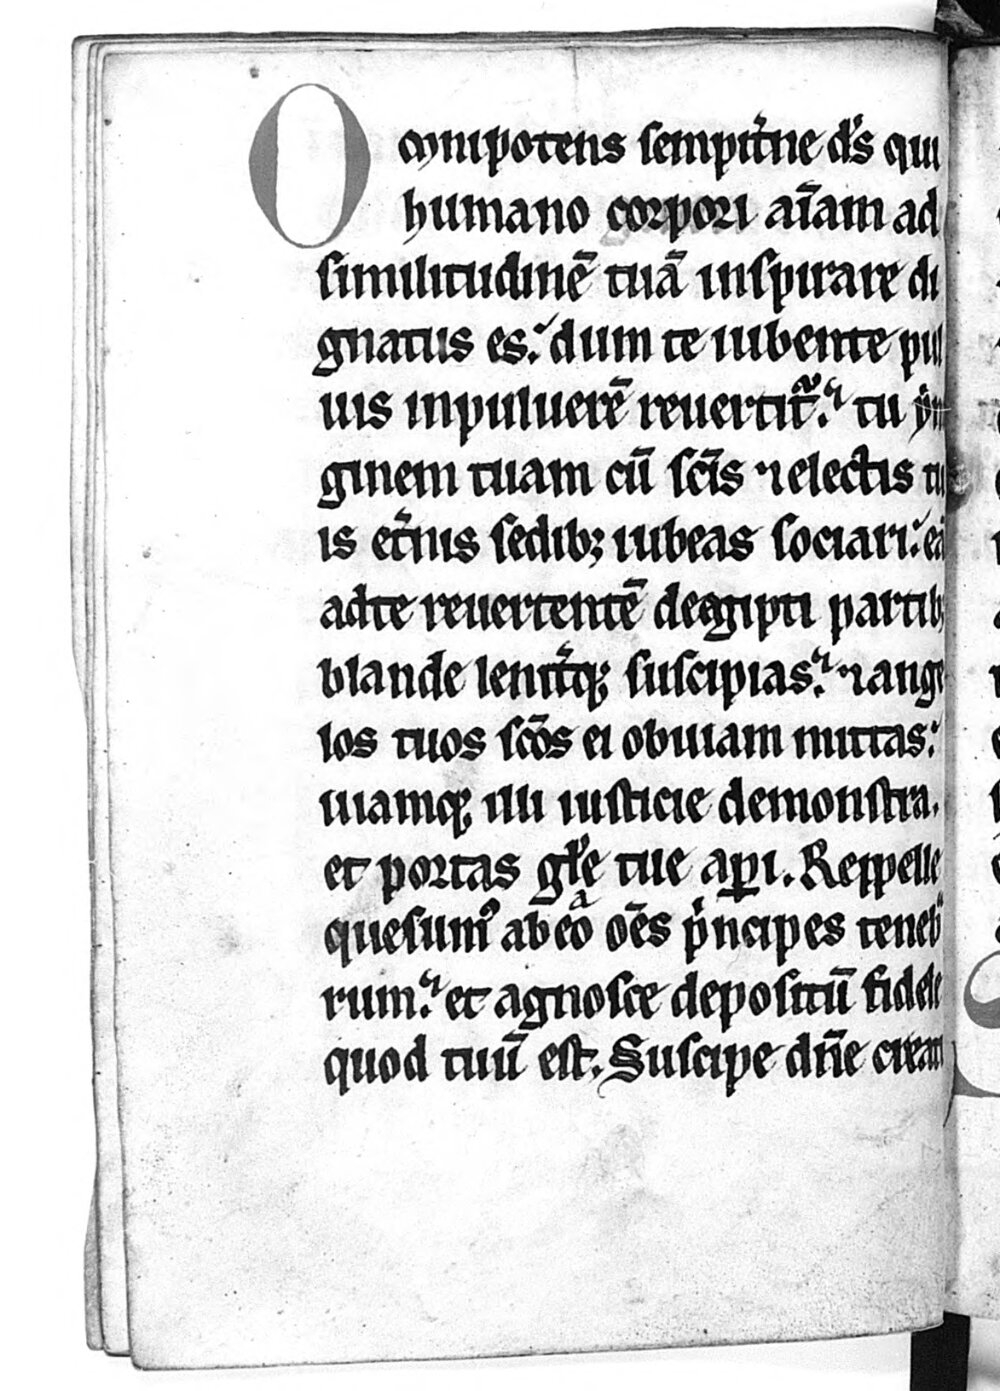 Omnipotens sempit̾ne d̾s qui
humano corpori aīam ad
similitudinē tuā inspirare di
gnatus es. dum te iubente pul
uis inpuluerē reuertit̃. tu ẏm
ginem tuam cū sc̄īs ⁊ electis tu
is et̾nis sedib; iubeas sociari. eā
adte reuertentē deegipti partib;
blande lenit̾q; suscipias. ⁊ ange
los tuos sc̄ōs ei obuiam mittas.
uiamq; illi iusticie demonstra.
et portas gl̾e tue aꝑi. Reppelle
quesum⁹ ab eo om̄s pⁱncipes teneb
rum. et agnosce depositū fidele
quod tuū est. Suscipe dn̄e creatu